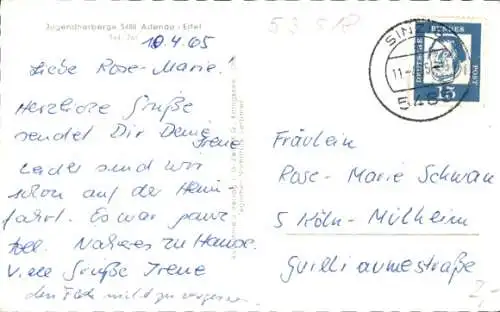 Jugendherberge 5488 Adenau - Eifel
10.4.65
Liebe Rose-Marie!
Herzliche Grüße
sendet Dir Deine
Irene
Leider sind wir
schon auf der Heim
fahrt. Es war ganz
toll. Näheres zu Hause.
Viele Grüße Irene
nicht zu vergessen
53518
DEUTSCHE BUNDESPOST
15
Fräulein
Rose-Marie Schwan
5 Köln-Mülheim
Guilleaumestraße
2,-